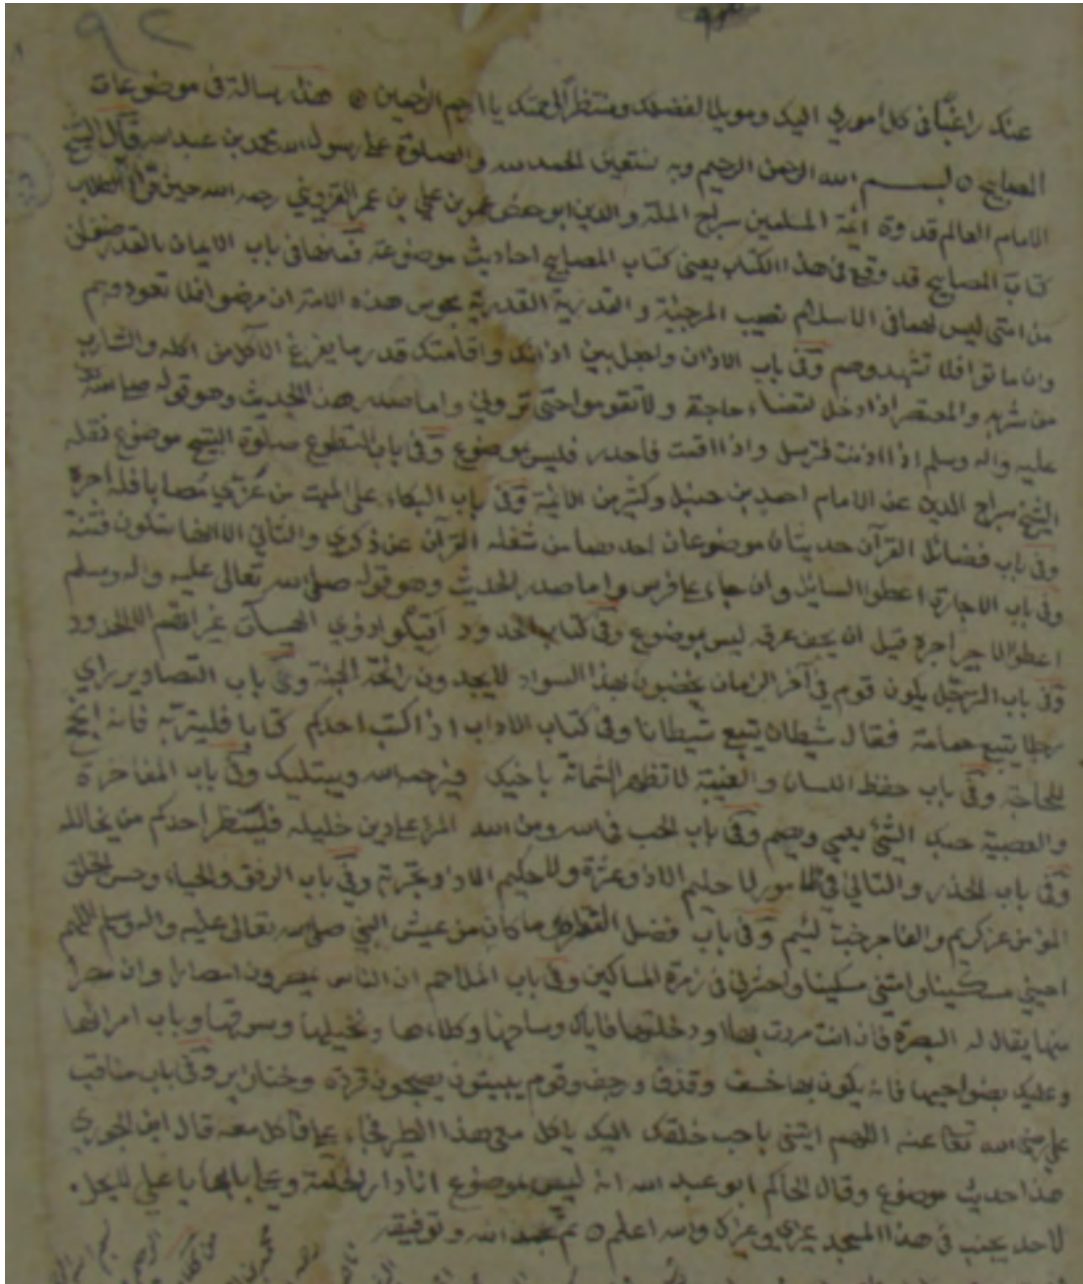 عنك راغبًا في كل اموري اليك ومويلا لفضلك ومنتظرًا الى رحمتك يا ارحم الراحمين هذه رسالة في موضوعات
المصابيح بسم الله الرحمن الرحيم وبه نستعين الحمد لله والصلوة على رسول الله محمد بن عبد الله قال الشيخ
الامام العالم قدوة ايمة المسلمين سراج الملة والدين ابو حفص عمر بن علي بن عمر القزويني رحمه الله حين
كتاب المصابيح قد وقع في هذا الكتاب يعني كتاب المصابيح احاديث موضوعة فمنها في باب الايمان بالقدر صنفان
من امتي ليس لهما في الاسلام نصيب المرجئة والقدرية القدرية مجوس هذه الامة ان مرضوا فلا تعودوهم
وان ماتوا فلا تشهدوهم وفي باب الاذان واجعل بين اذانك واقامتك قدر ما يفرغ الآكل من اكله والشارب
من شربه والمعتصر اذا دخل لقضاء حاجته ولا تقوموا حتى تروني واما صدر هذا الحديث وهو قوله صلى الله
عليه واله وسلم اذا اذنت فترسل واذا اقمت فاحدر فليس بموضوع وفي باب التطوع صلوة التسبيح موضوع نقله
الشيخ سراج الدين عن الامام احمد بن حنبل وكثير من الائمة وفي باب البكاء على الميت من عزى مصابا فله اجره
وفي باب فضائل القرآن حديثان موضوعان احدهما من شغله القرآن عن ذكري والثاني الا انها ستكون فتنة
وفي باب الاجارة اعطوا السايل وان جاء على فرس واما صدر الحديث وهو قوله صلى الله تعالى عليه واله وسلم
اعطوا الاجير اجره قبل ان يجف عرقه ليس بموضوع وفي كتاب الحدود اقيلوا ذوي الهيئات عثراتهم الا الحدود
وفي باب الترجل يكون قوم في آخر الزمان يخضبون بهذا السواد لا يجدون رائحة الجنة وفي باب التصاوير راي
رجلا يتبع حمامة فقال شيطان يتبع شيطانا وفي كتاب الاداب اذا كتب احدكم كتابا فليتربه فانه انجح
للحاجة وفي باب حفظ اللسان والغيبة لا تظهر الشماتة باخيك فيرحمه الله ويبتليك وفي باب المفاخرة
والعصبية حبك الشئ يعمي ويصم وفي باب الحب في الله ومن الله المرء على دين خليله فلينظر احدكم من يخالله
وفي باب الحذر والتاني في الامور لا حليم الا ذو عثرة ولا حكيم الا ذو تجربة وفي باب الرفق والحياء وحسن الخلق
المؤمن غر كريم والفاجر خب لئيم وفي باب فضل الفقراء وما كان من عيش النبي صلى الله تعالى عليه واله وسلم اللهم
احيني مسكينا وامتني مسكينا واحشرني في زمرة المساكين وفي باب الملاحم ان الناس يمصرون امصارا وان مصرا
منها يقال له البصرة فان انت مررت بها او دخلتها فاياك وسباخها وكلاءها ونخيلها وسوقها وباب امرائها
وعليك بضواحيها فانه يكون بها خسف وقذف ورجف وقوم يبيتون يصبحون قردة وخنازير وفي باب مناقب
علي رضي الله تعالى عنه اللهم ايتني باحب خلقك اليك ياكل معي هذا الطير فجاء علي فاكل معه قال ابن الجوزي
هذا حديث موضوع وقال الحاكم ابو عبد الله انه ليس بموضوع انا دار الحكمة وعلي بابها يا علي لا يحل
لاحد يجنب في هذا المسجد غيري وغيرك والله اعلم تم بحمد الله وتوفيقه